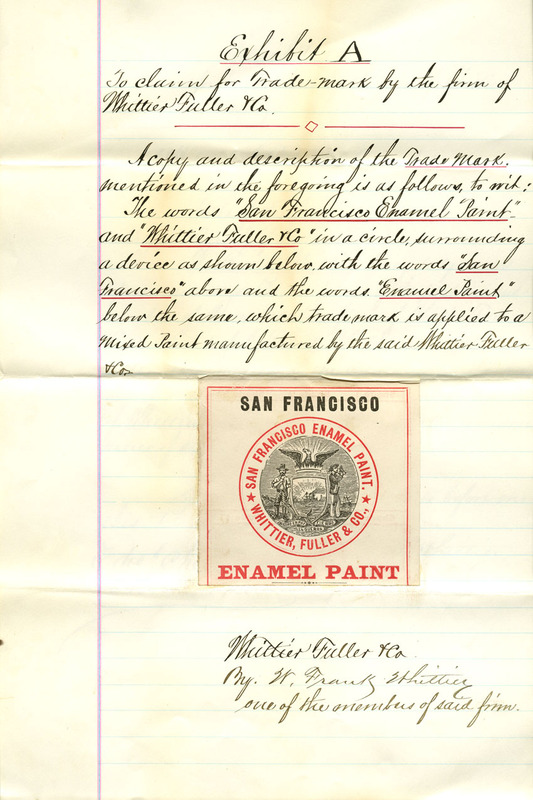 Exhibit A
To claim for Trade-mark by the firm of
Whittier Fuller & Co.
A copy and description of the Trade Mark,
mentioned in the foregoing is as follows, to wit:
The words "San Francisco Enamel Paint"
and "Whittier Fuller & Co" in a circle, surrounding
a device as shown below, with the words "San
Francisco" above and the words "Enamel Paint"
below the same, which trade mark is applied to a
Mixed Paint manufactured by the said Whittier Fuller
& Co.
SAN FRANCISCO
SAN FRANCISCO ENAMEL PAINT.
WHITTIER, FULLER & CO.,
ENAMEL PAINT
Whittier Fuller & Co.
By. W. Frank Whittier
one of the members of said firm.